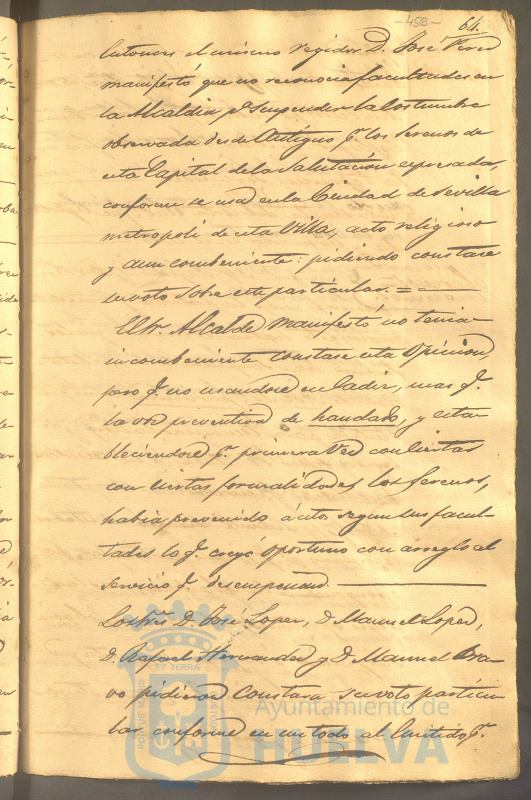 -456- 64.
Entonces el mismo regidor D. José
manifestó que no reconocia facultades en
la Alcaldia, pa suspender la costumbre
observada desde antiguo pr. los serenos de
esta Capital de la Salutación expresada,
conforme se usa en la Ciudad de Sevilla
metropoli de esta Villa, acto religioso
y aun combeniente: pidiendo constase
su voto sobre este particular. =
El Sr. Alcalde manifestó no tenia
incombeniente constase esta Opinion,
pero q. no usandose en Cadiz, mas q.
la voz preventiva de, y estan
bleciendose pr. primera Vez con ciertas
con ciertas formalidades los Serenos,
habia prevenido á estos segun sus facul
tades lo q. creyó oportuno con arreglo al
servicio q. desempeñan.
Los Sres. D. José Lopez, D. Manuel Lopez,
D. Rafael Hernandez y D. Manuel Bra
vo pidieron constara su voto particu
lar conforme en un todo al emitido pr.
PORTUS MARIS ET TERRAE CUSTODIA
Ayuntamiento de
HUELVA